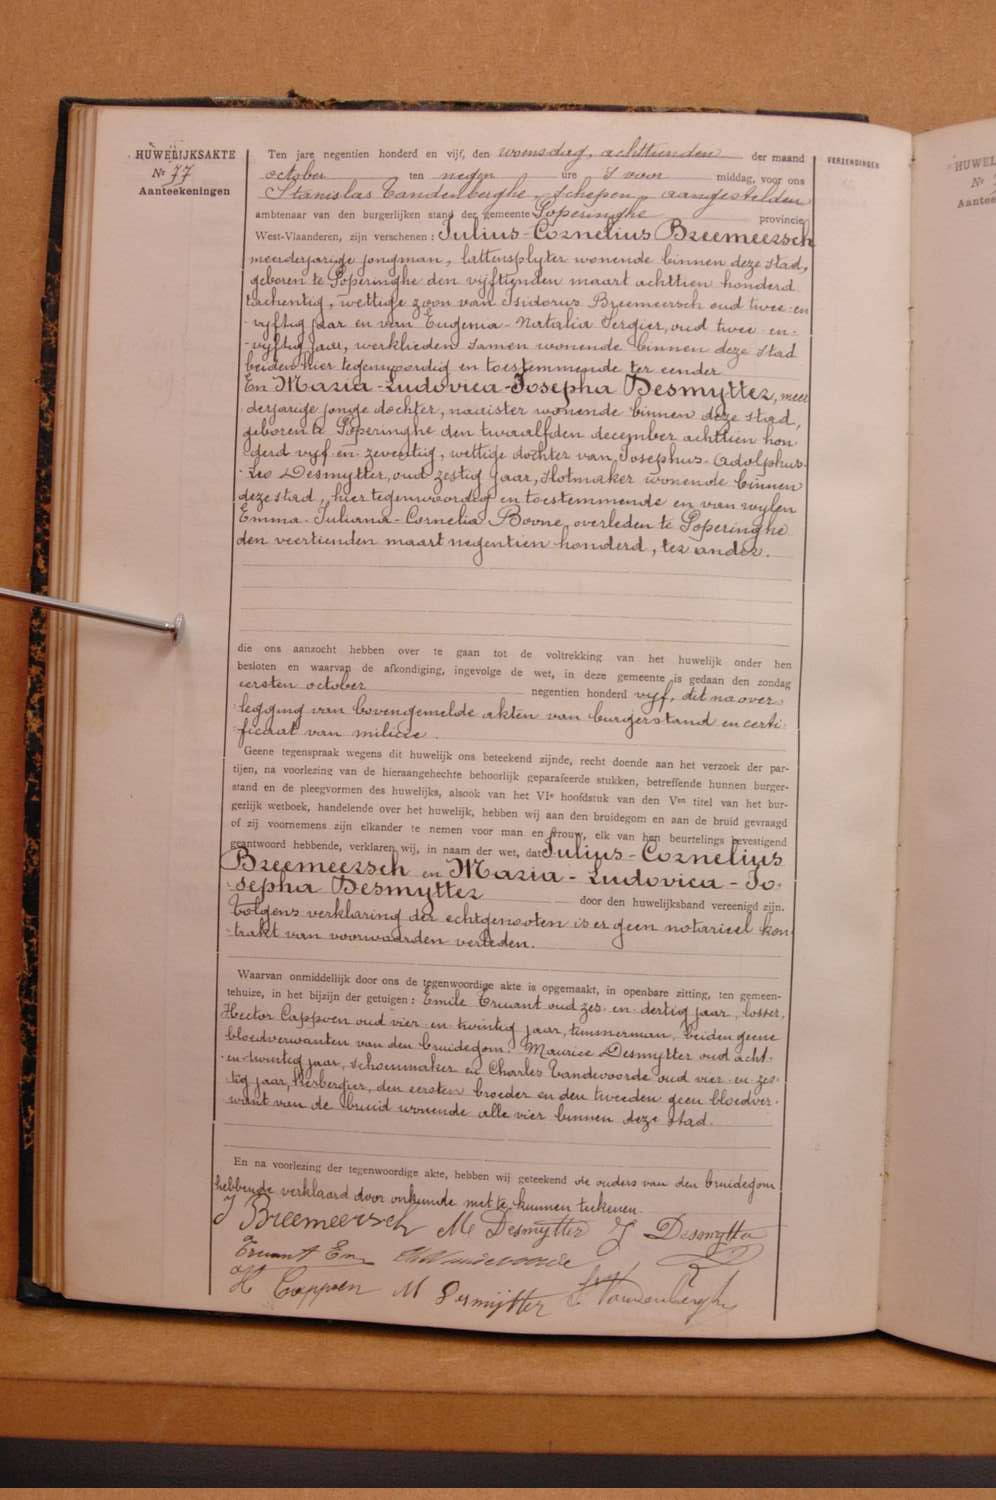 HUWELIJKSAKTE
Nr 77
Aanteekeningen
VERZENDINGEN
Ten jare negentien honderd en vijf, den woensdag, achttienden der maand
october ten negen ure 's voor middag, voor ons
Stanislas Vandenberghe, schepen, aangestelden
ambtenaar van den burgerlijken stand der gemeente Poperinghe provincie
West-Vlaanderen, zijn verschenen: Julius-Cornelius Breemeersch
meerderjarige jongman, lattensplyter wonende binnen deze stad,
geboren te Poperinghe den vijftienden maart achttien honderd
tachentig, wettige zoon van Isidorus Breemeersch oud twee-en-
vijftig jaar en van Eugenia-Natalia Tergier, oud twee-en-
vijftig jaar, werklieden samen wonende binnen deze stad
beiden hier tegenwoordig en toestemmende ter eender
En Maria-Ludovica-Josepha Desmytter, meer
derjarige jonge dochter, naaister wonende binnen deze stad,
geboren te Poperinghe den twaalfden december achttien hon
derd vijf-en-zeventig, wettige dochter van Josephus-Adolphus-
Leo Desmytter, oud zestig jaar, slotmaker wonende binnen
deze stad, hier tegenwoordig en toestemmende en van wylen
Emma-Juliana-Cornelia Bovne, overleden te Poperinghe
den veertienden maart negentien honderd, ter ander.
die ons aanzocht hebben over te gaan tot de voltrekking van het huwelijk onder hen
besloten en waarvan de afkondiging, ingevolge de wet, in deze gemeente is gedaan den zondag
eersten october negentien honderd vijf, dit na over
legging van bovengemelde akten van burgerstand en certi-
ficaat van milicie.
Geene tegenspraak wegens dit huwelijk ons beteekend zijnde, recht doende aan het verzoek der par-
tijen, na voorlezing van de hieraangehechte behoorlijk geparafeerde stukken, betreffende hunnen burger-
stand en de pleegvormen des huwelijks, alsook van het VIe hoofdstuk van den Ven titel van het bur-
gerlijk wetboek, handelende over het huwelijk, hebben wij aan den bruidegom en aan de bruid gevraagd
of zij voornemens zijn elkander te nemen voor man en vrouw, elk van hen beurtelings bevestigend
geantwoord hebbende, verklaren wij, in naam der wet, dat Julius-Cornelius
Breemeersch en Maria-Ludovica-Jo-
sepha Desmytter door den huwelijksband vereenigd zijn.
Volgens verklaring der echtgenooten is er geen notarieel kon
trakt van voorwaarden verleden.
Waarvan onmiddellijk door ons de tegenwoordige akte is opgemaakt, in openbare zitting, ten gemeen-
tehuize, in het bijzijn der getuigen: Emile Truant oud zes-en-dertig jaar, losser,
Hector Cappoen oud vier-en-twintig jaar, timmerman, beiden geene
bloedverwanten van den bruidegom. Maurice Desmytter oud acht-
en-twintig jaar, schoenmaker en Charles Vandevoorde oud vier-en-zes-
tig jaar, herbergier, den eersten broeder en den tweeden geen bloedver-
want van de bruid wonende alle vier binnen deze stad.
En na voorlezing der tegenwoordige akte, hebben wij geteekend de ouders van den bruidegom
hebbende verklaard door onkunde niet te kunnen teekenen.
J Breemeersch M Desmytter J Desmytter
Truant Em Ch Vandevoorde
H Cappoen M Desmijtter St Vandenberghe